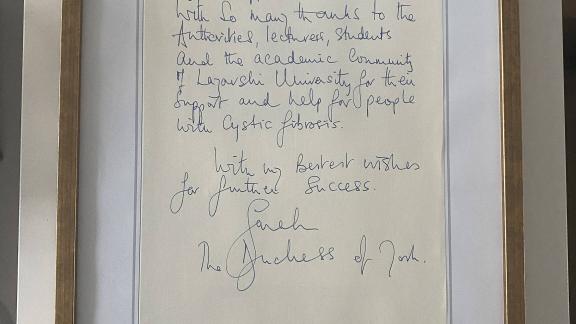 With so many thanks to the
Authorities, lecturers, students
and the academic Community
of Lazarski University for their
Support and help for people
with Cystic fibrosis.
With my Bestest wishes
for further Success.
Sarah
The Duchess of York.